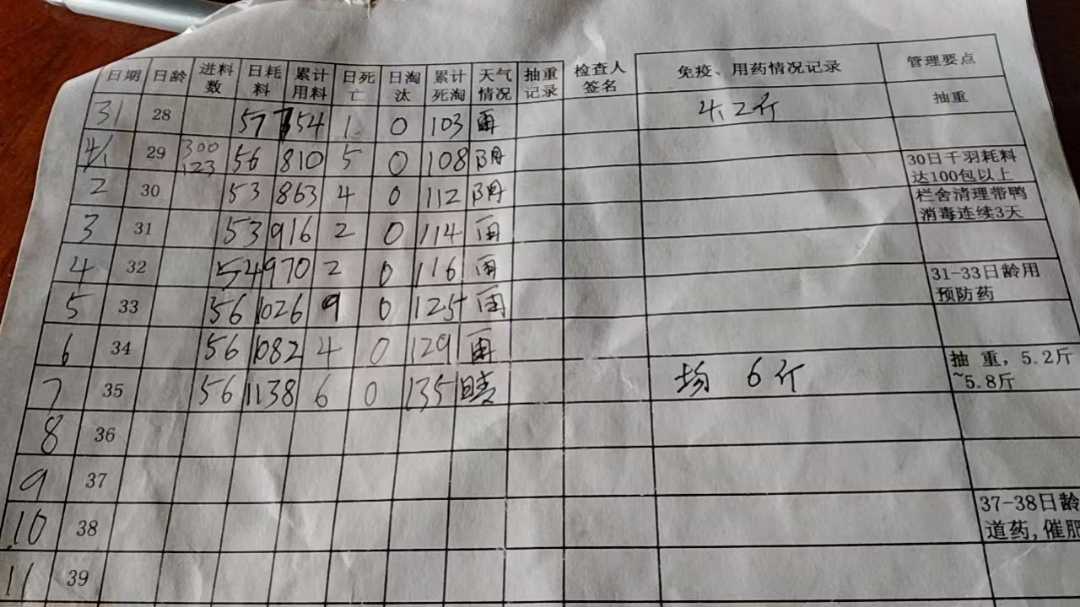 日期 日龄 进料数 日耗料 累计用料 日死亡 日淘汰 累计死淘 天气情况 抽重记录 检查人签名 免疫、用药情况记录 管理要点
31 28 57 754 1 0 103 雨 4.2斤 抽重
4/1 29 300 123 56 810 5 0 108 阴 30日千羽耗料达100包以上
2 30 53 863 4 0 112 阴 栏舍清理带鸭消毒连续3天
3 31 53 916 2 0 114 雨
4 32 54 970 2 0 116 雨 31-33日龄用预防药
5 33 56 1026 9 0 125 雨
6 34 56 1082 4 0 129 雨
7 35 56 1138 6 0 135 晴 均 6斤 抽重，5.2斤~5.8斤
8 36
9 37
10 38 37-38日龄 道药,催肥
11 39